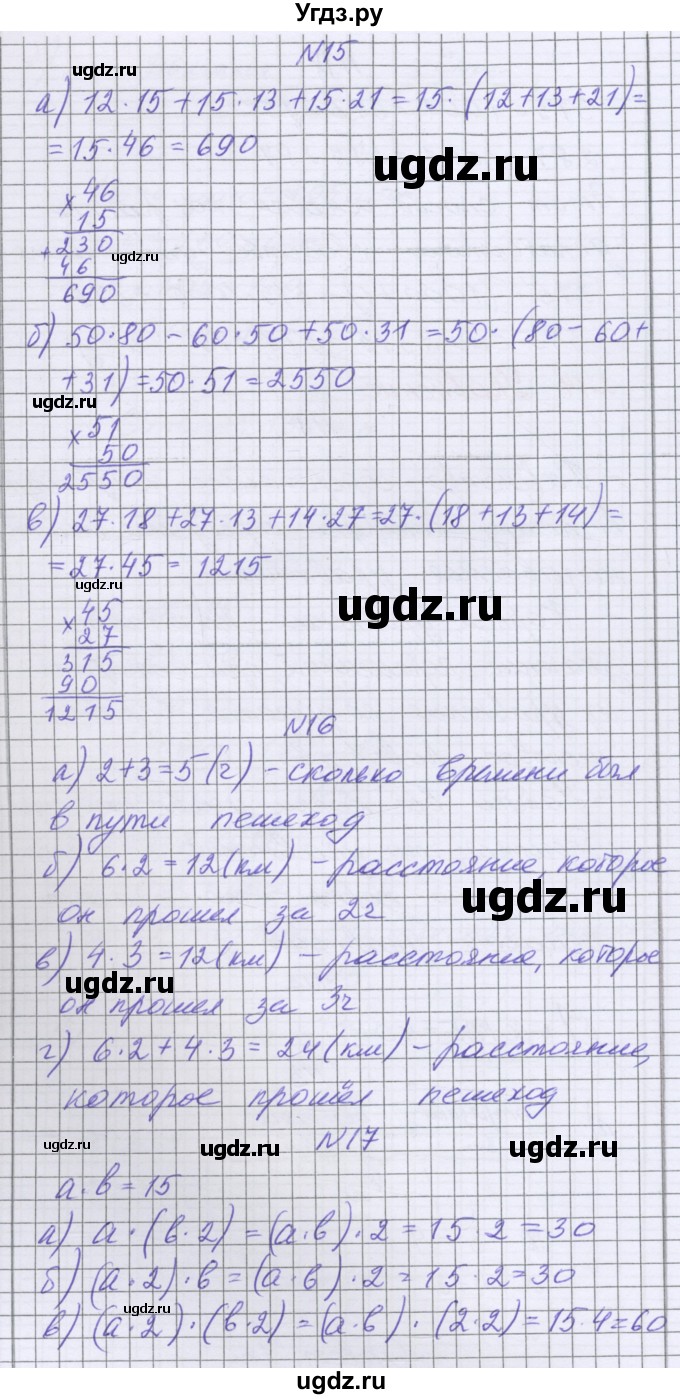 Угдз.ру
N15
ugdz.ru
а) 12·15+15·13+15·21=15·(12+13+21)=
=15·46=690
ugdz.ru
×46
15
+230
ugdz.ru
46
690
б) 50·80-60·50+50·31=50·(80-60+
+31)=50·51=2550
ugdz.ru
×51
50
2550
в) 27·18+27·13+14·27=27·(18+13+14)=
=27·45=1215
ugdz.ru
ugdz.ru
×45
27
315
90
1215
N16
а) 2+3=5(г) - сколько времени был
в пути пешеход
б) 6·2=12(км) - расстояние, которое
ugdz.ru
он прошел за 2г
в) 4·3=12(км) - расстояние, которое
ugdz.ru
он прошел за 3г
г) 6·2+4·3=24(км) - расстояние,
которое прошёл пешеход
ugdz.ru
ugdz.ru
N17
ugdz.ru
а·в=15
а) а·(в·2)=(а·в)·2=15·2=30
б) (а·2)·в=(а·в)·2=15·2=30
ugdz.ru
в) (а·2)·(в·2)=(а·в)·(2·2)=15·4=60
ugdz.ru